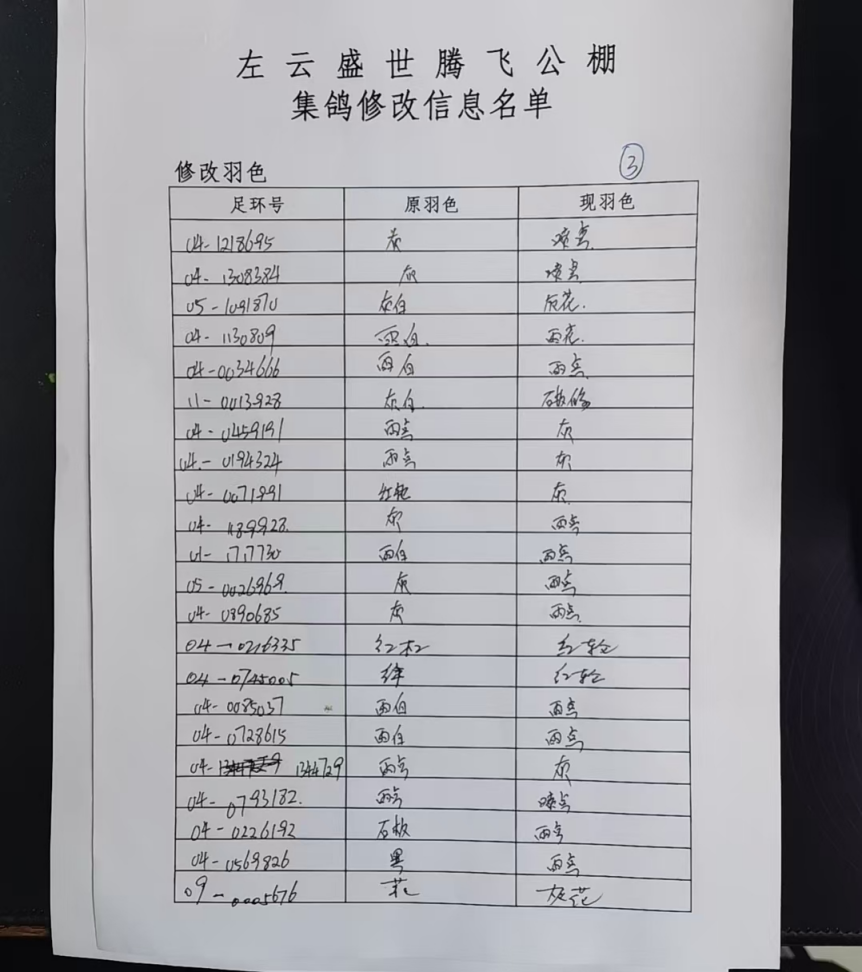 左云盛世腾飞公棚
集鸽修改信息名单
③
修改羽色
足环号 原羽色 现羽色
04-1218695 灰
04-1308384 灰
05-1091870 灰白 灰花.
04-1130809 雨白. 雨花.
04-0034666 雨白 雨点
11-0013928 灰白.
04-0459191 雨点 灰
04.-0194324 雨点 灰
04-0071991 灰
04-1189928. 灰 雨点
01-1717730 雨白 雨点
05-0026969. 灰 雨点
04-0890685 灰 雨点
04-0216335 红轮
04-0745005 绛 红轮
04-0085037 雨白 雨点
04-0728615 雨白 雨点
04- 1344729 雨点 灰
04-0793182. 雨点
04-0226192 石板 雨点
04-0569826 黑 雨点
09-0005676 灰花